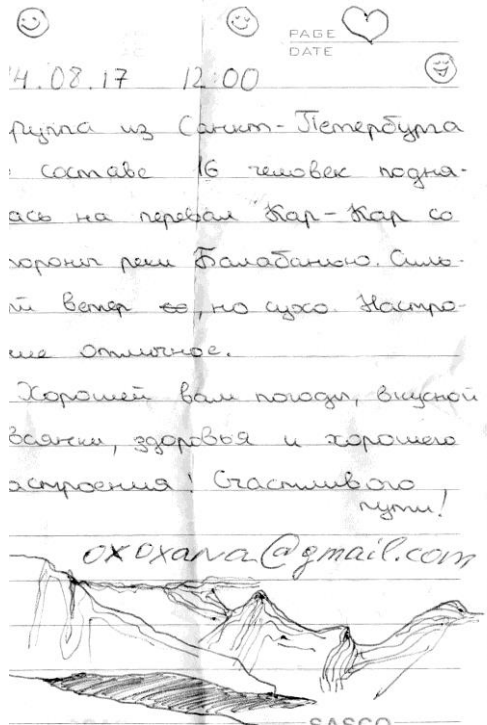 PAGE
DATE
4.08.17 12:00
руппа из Санкт-Петербурга
составе 16 человек подня-
ась на перевал Кар-Кар со
тороны реки Балабанью. Силь-
й ветер, но сухо. Настро-
ие отличное.
Хорошей вам погоды, вкусной
всянки, здоровья и хорошего
астроения! Счастливого
пути!
oxoxana@gmail.com
SASCO